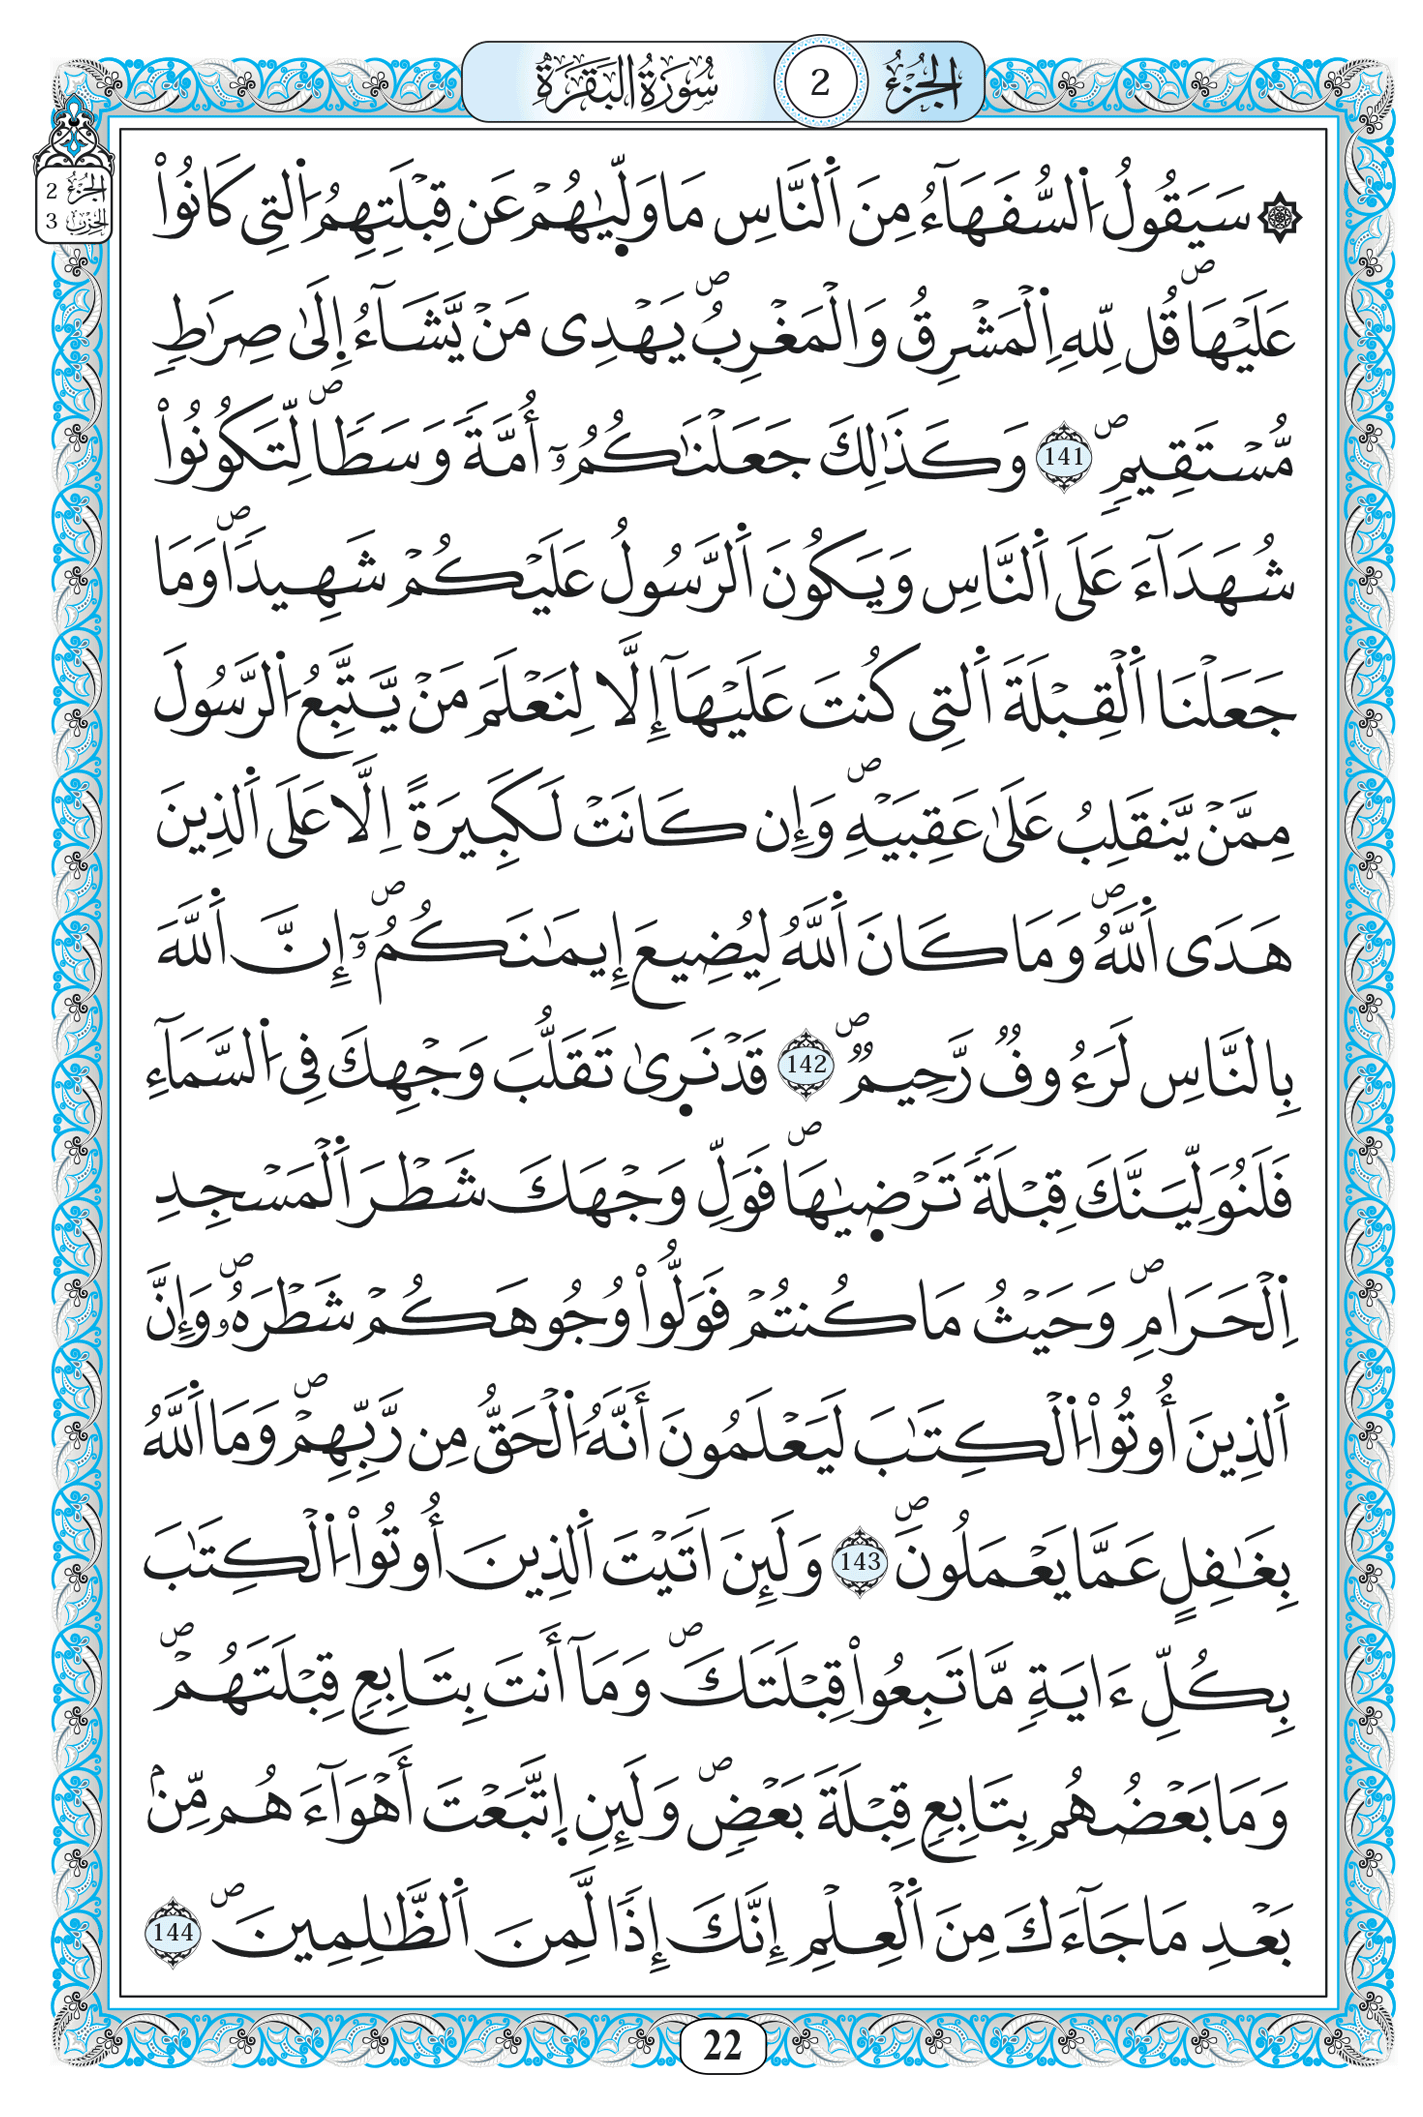 الجزء 2 سورة البقرة
الجزء 2
الحزب 3
۞ سَيَقُولُ اُ۬لسُّفَهَآءُ مِنَ اَ۬لنَّاسِ مَا وَلّ۪يٰهُمْ عَن قِبْلَتِهِمُ اُ۬لتِى كَانُواْ
عَلَيْهَاۖ قُل لِّلهِ اِ۬لْمَشْرِقُ وَالْمَغْرِبُۖ يَهْدِى مَنْ يَّشَآءُ اِ۪لَىٰ صِرَٰطٖ
مُّسْتَقِيمٖۖ 141 وَكَذَٰلِكَ جَعَلْنَٰكُمُۥٓ أُمَّةٗ وَسَطاٗۖ لِّتَكُونُواْ
شُهَدَآءَ عَلَى اَ۬لنَّاسِ وَيَكُونَ اَ۬لرَّسُولُ عَلَيْكُمْ شَهِيداٗۖ وَمَا
جَعَلْنَا اَ۬لْقِبْلَةَ اَ۬لتِى كُنتَ عَلَيْهَآ إِلَّا لِنَعْلَمَ مَنْ يَّتَّبِعُ اُ۬لرَّسُولَ
مِمَّنْ يَّنقَلِبُ عَلَىٰ عَقِبَيْهِۖ وَإِن كَانَتْ لَكَبِيرَةً اِلَّا عَلَى اَ۬لذِينَ
هَدَى اَ۬للَّهُۖ وَمَا كَانَ اَ۬للَّهُ لِيُضِيعَ إِيمَٰنَكُمُۥٓۖ إِنَّ اَ۬للَّهَ
بِالنَّاسِ لَرَءُوفٞ رَّحِيمٞۖ 142 قَدْ نَر۪ىٰ تَقَلُّبَ وَجْهِكَ فِى اِ۬لسَّمَآءِ
فَلَنُوَلِّيَنَّكَ قِبْلَةٗ تَرْض۪يٰهَاۖ فَوَلِّ وَجْهَكَ شَطْرَ اَ۬لْمَسْجِدِ
اِ۬لْحَرَامِۖ وَحَيْثُ مَا كُنتُمْ فَوَلُّواْ وُجُوهَكُمْ شَطْرَهُۥۖ وَإِنَّ
اَ۬لذِينَ أُوتُواْ اُ۬لْكِتَٰبَ لَيَعْلَمُونَ أَنَّهُ اُ۬لْحَقُّ مِن رَّبِّهِمْۖ وَمَا اَ۬للَّهُ
بِغَٰفِلٍ عَمَّا يَعْمَلُونَۖ 143 وَلَئِنَ اَتَيْتَ اَ۬لذِينَ أُوتُواْ اُ۬لْكِتَٰبَ
بِكُلِّ ءَايَةٖ مَّا تَبِعُواْ قِبْلَتَكَۖ وَمَآ أَنتَ بِتَابِعٖ قِبْلَتَهُمْۖ
وَمَا بَعْضُهُم بِتَابِعٖ قِبْلَةَ بَعْضٖۖ وَلَئِنِ اِ۪تَّبَعْتَ أَهْوَآءَهُم مِّنۢ
بَعْدِ مَا جَآءَكَ مِنَ اَ۬لْعِلْمِ إِنَّكَ إِذاٗ لَّمِنَ اَ۬لظَّٰلِمِينَۖ 144
22